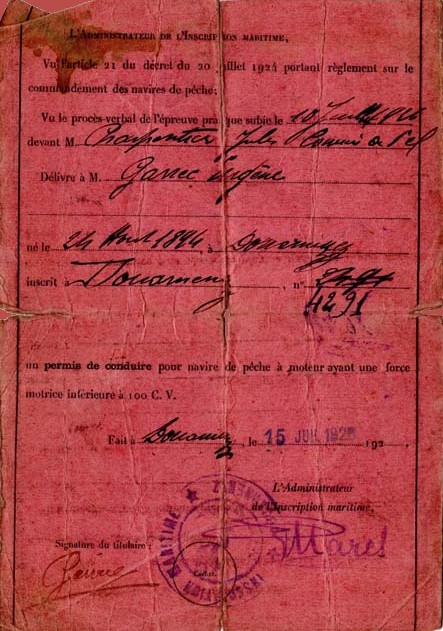 L'ADMINISTRATEUR DE L'INSCRIPTION MARITIME,
Vu l'article 21 du décret du 20 juillet 1924 portant règlement sur le
commandement des navires de pêche;
Vu le procès-verbal de l'épreuve pratique subie le
devant M. Charpentier, Jules
Délivré à M. Garrec Eugène
né le 24 Aout 1894 à Douarnenez
inscrit à Douarnenez, n°
4291
un permis de conduire pour navire de pêche à moteur ayant une force
motrice inférieure à 100 C. V.
Fait à Douarnenez, le 15 192
L'Administrateur
de l'Inscription maritime,
INSCRIPTION MARITIME
Signature du titulaire :
Cachet.